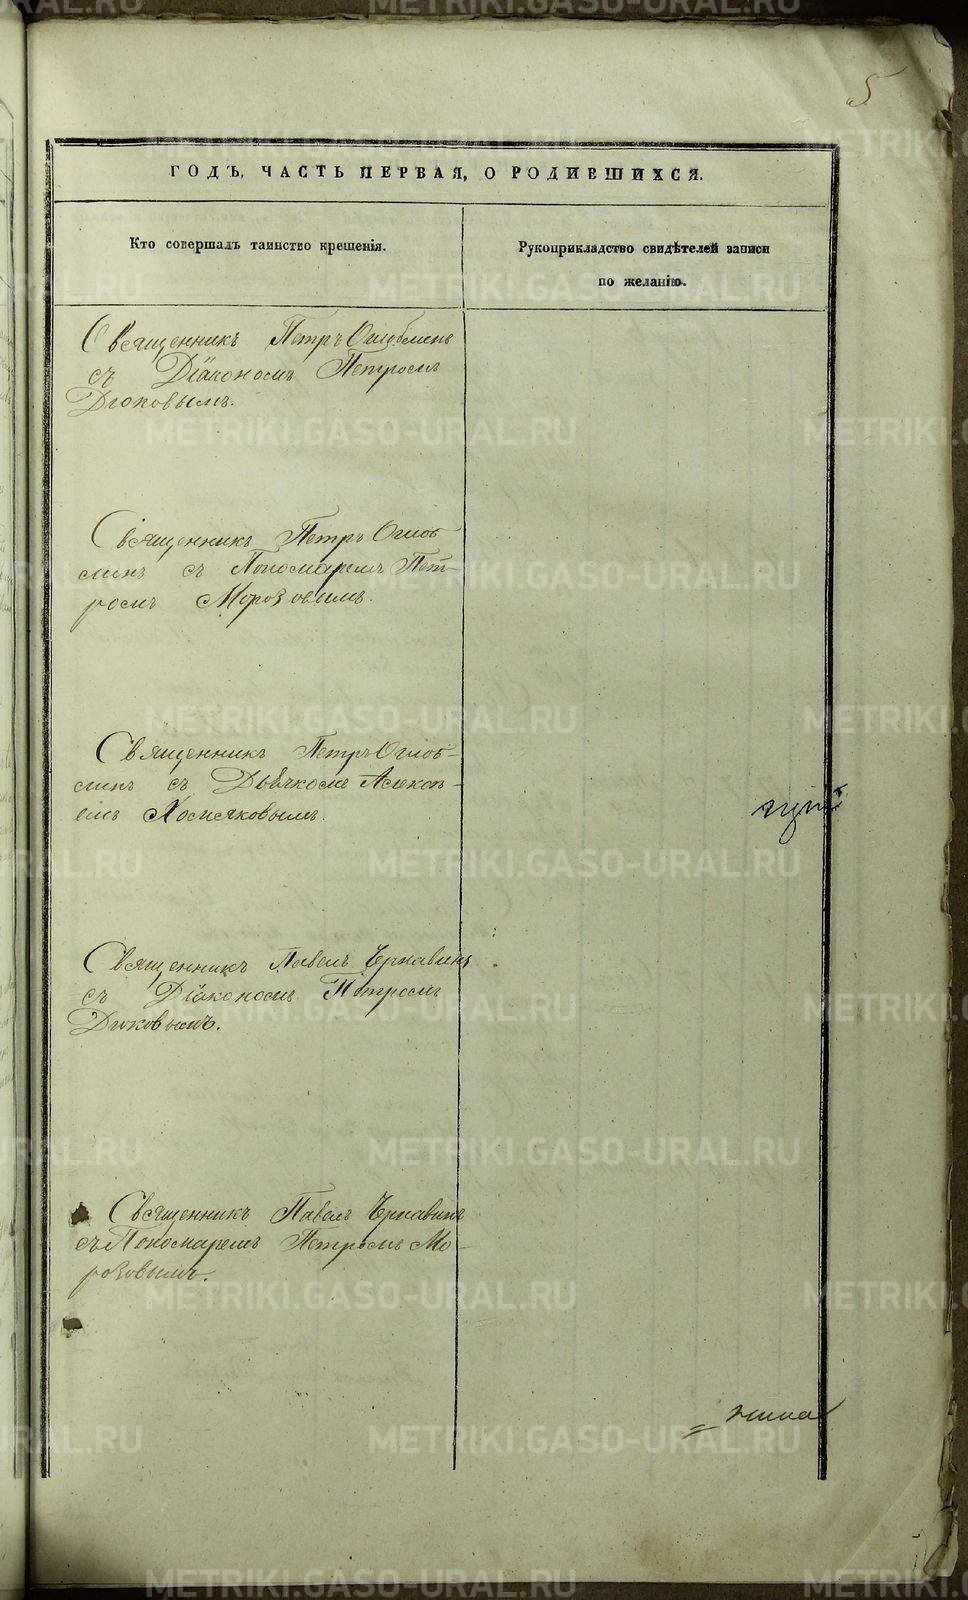 5
ГОДЪ, ЧАСТЬ ПЕРВАЯ, О РОДИВШИХСЯ.
Кто совершалъ таинство крещенія.
Рукоприкладство свидѣтелей записи
по желанію.
Священникъ Петръ Оглоблинъ
съ Діакономъ Петромъ
Дюковымъ.
Священникъ Петръ Оглоб-
линъ съ Пономаремъ Пет-
ромъ Морозовымъ.
Священникъ Петръ Оглоб-
линъ съ Дьячкомъ Алексѣ-
емъ Хомяковымъ.
Священникъ Павелъ Чернавинъ
съ Діакономъ Петромъ
Дюковымъ.
Священникъ Павелъ Чернавинъ
съ Пономаремъ Петромъ Мо-
розовымъ.
METRIKI.GASO-URAL.RU